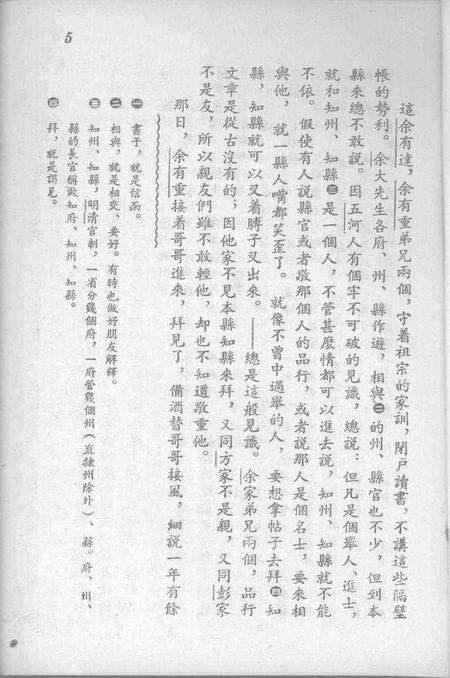 5
這余有達，余有重弟兄兩個，守着祖宗的家訓，閉戶讀書，不講這些隔壁
帳的勢利。余大先生各府、州、縣作遊，相與㊁的州、縣官也不少，但到本
縣來總不敢說。因五河人有個牢不可破的見識，總說：但凡是個舉人、進士，
就和知州、知縣㊂是一個人，不管甚麼情都可以進去說，知州、知縣就不能
不依。假使有人說縣官或者敬那個人的品行，或者說那人是個名士，要來相
與他，就一縣人嘴都笑歪了。就像不曾中過舉的人，要想拿帖子去拜㊃知
縣，知縣就可以叉着膊子叉出來。——總是這般見識。余家弟兄兩個，品行
文章是從古沒有的；因他家不見本縣知縣來拜，又同方家不是親，又同彭家
不是友，所以親友們雖不敢輕他，却也不知道敬重他。
那日，余有重接着哥哥進來，拜見了，備酒替哥哥接風，細說一年有餘
㊀ 書子，就是信函。
㊁ 相與，就是相交、要好。有時也做好朋友解釋。
㊂ 知州、知縣，明清官制，一省分幾個府，一府管幾個州（直隸州除外）、縣。府、州、
縣的長官稱做知府、知州、知縣。
㊃ 拜，就是謁見。